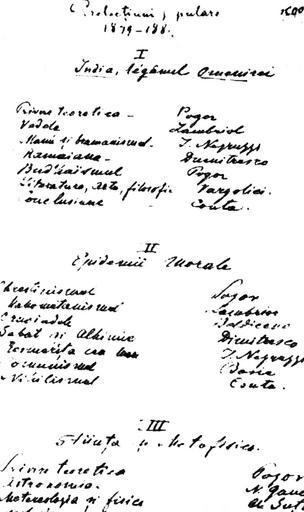 Prelecțiuni populare
1879-188.
I
India, légănul omenirei
Privire teoretica - Pogor
Vedele Lambrior
Manu și bramanismul. I. Negruzzi
Ramaiana - Dumitrescu
Budhaismul Pogor
Literatura, arta, filosofie Vargolici.
Conclusiune Conta.
II
Epidemii Morale
Chrestinismul Pogor
Mahometanismul Lambrior
Cruciadele
Sabat si Alhimie Dimitrescu
I. Negruzzi
omunismul
Nihilismul Conta.
III
Știința și Metafisica.
Privire teoretica Pogor
Astronomia. N.
Metereologia si fisica